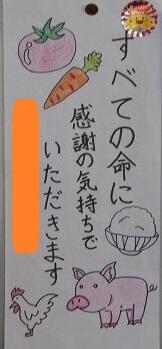 すべての命に
感謝の気持ちで
いただきます